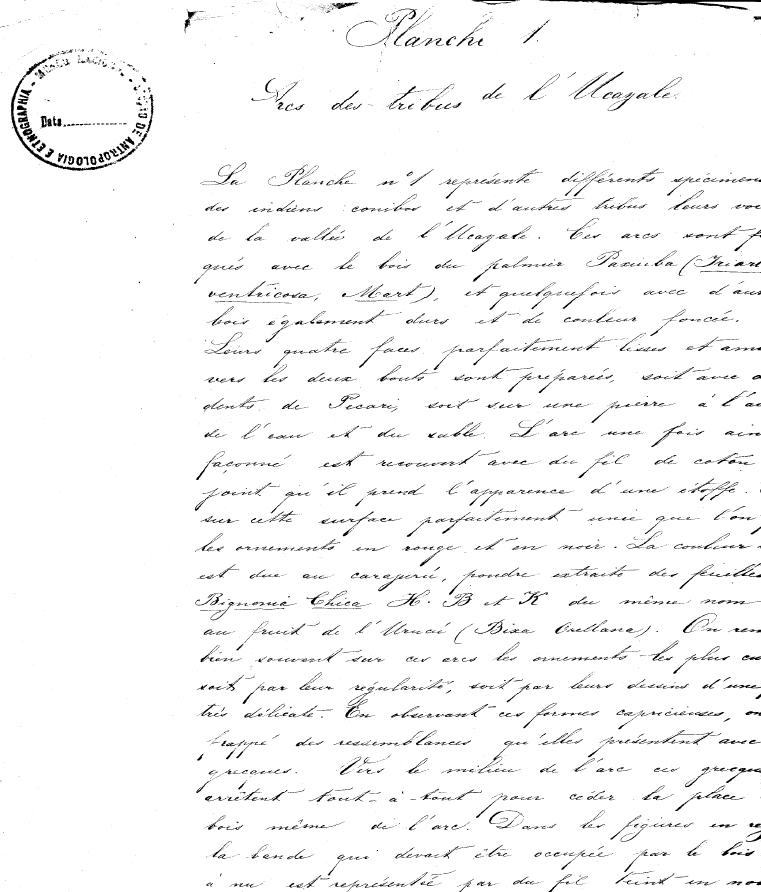 Planche 1.
Arcs des tribus de l'Ucayale.
MUSEU NACIONAL - DE ANTROPOLOGIA E ETNOGRAPHIA -
Data
La Planche n° 1 représente différents spécimens
des indiens conibos et d'autres tribus leurs voi
de la vallée de l'Ucayale. Ces arcs sont f
qués avec le bois du palmier Paxiuba (Iriar
ventricosa, Mart), et quelquefois avec d'au
bois également durs et de couleur foncée.
Leurs quatre faces parfaitement lisses et am
vers les deux bouts sont preparées, soit avec
dents de Pecari, soit sur une pierre à l'ai
de l'eau et du sable. L'arc une fois ain
façonné est recouvert avec du fil de coton
joint qu'il prend l'apparence d'une étoffe.
sur cette surface parfaitement unie que l'on
les ornements en rouge et en noir. La couleur
est due au carajerú, poudre extraite des feuilles
Bignonia Chica H. B et K du même nom
au fruit de l'Urucú (Bixa Orellana). On ren
bien souvent sur ces arcs les ornements les plus cu
soit par leur regularité, soit par leurs dessins d'une
trés délicate. En observant ces formes capricieuses, on
frappé des ressemblances qu'elles présentent avec
grecques. Vers le milieu de l'arc ces grecqu
arrêtent tout-à-tout pour céder la place
bois même de l'arc. Dans les figures en re
la bande qui devait être occupée par le bois
à nu est représentée par du fil teint en no